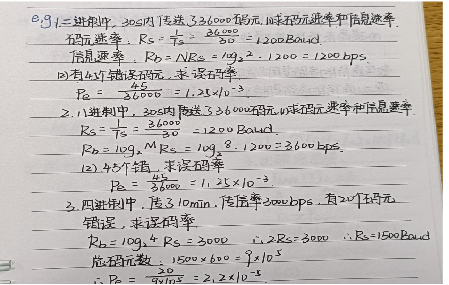 e.g 1.二进制中，30s内传送了36000码元，(1)求码元速率和信息速率.
码元速率. Rs = 1/Ts = 36000/30 = 1200 Baud
信息速率. Rb = NRs = log₂2 · 1200 = 1200 bps.
(2)有45个错误码元，求误码率
Pe = 45/36000 = 1.25×10⁻³
2.八进制中，30s内传送了36000码元(1)求码元速率和信息速率.
Rs = 1/Ts = 36000/30 = 1200 Baud
Rb = log₂M Rs = log₂8 · 1200 = 3600 bps.
(2) 45个错，求误码率
Pe = 45/36000 = 1.25×10⁻³
3.四进制中，传了10min，传信率3000bps，有20个码元
错误，求误码率
Rb = log₂4 Rs = 3000 ∴2Rs=3000 ∴Rs=1500Baud
总码元数：1500×600=9×10⁵
∴Pe = 20/9×10⁵ = 2.2×10⁻⁵